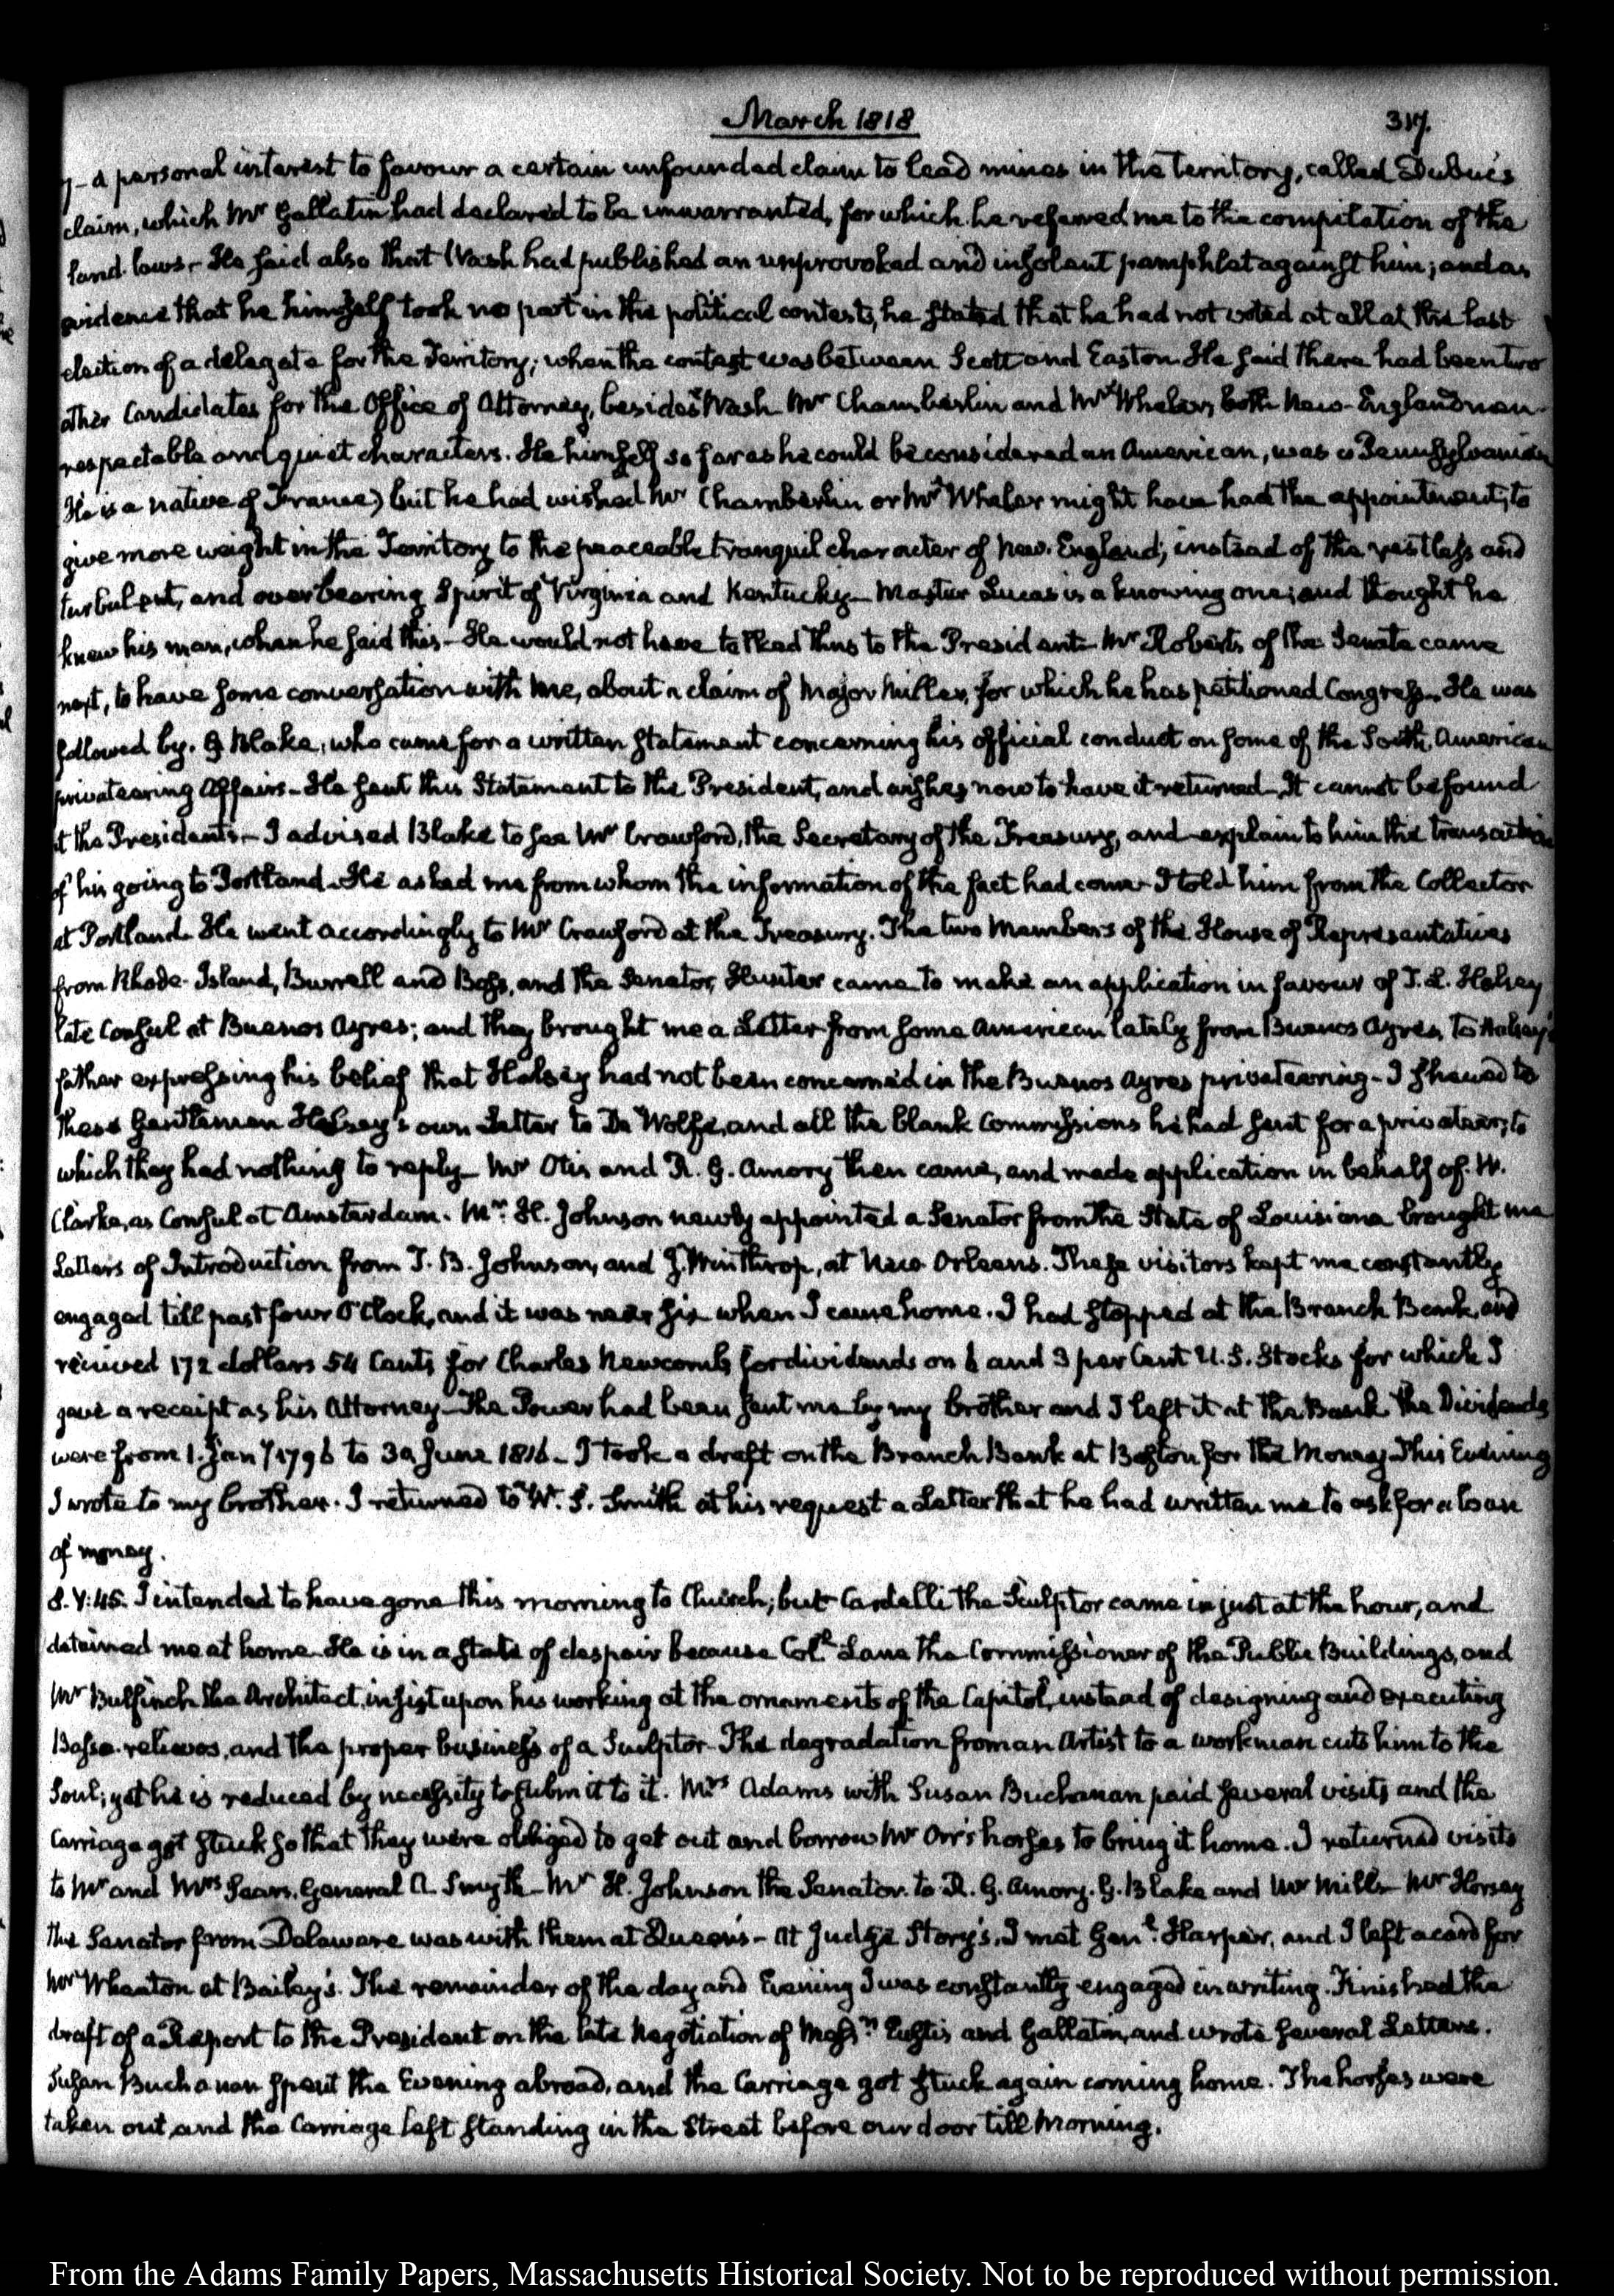 March 1818 317.
7— a personal interest to favour a certain unfounded claim to lead mines in the territory, called Dubuc's
claim, which Mr Gallatin had declared to be unwarranted, for which he referred me to the compilation of the
land laws— He said also that Wash had published an unprovoked and insolent pamphlet against him; and as
evidence that he himself took no part in the political contests, he stated that he had not voted at all at the last
election of a delegate for the Territory; when the contest was between Scott and Easton. He said there had been two
other Candidates for the Office of Attorney, besides Wash Mr Chamberlin and Mr Wheler, both New-England men
respectable and quiet characters. He himself so far as he could be considered an American, was a Pennsylvanian
He is a native of France) but he had wished Mr Chamberlin or Mr Wheler might have had the appointment; to
give more weight in the Territory to the peaceable tranquil character of New-England; instead of the restless and
turbulent, and overbearing Spirit of Virginia and Kentucky— Master Lucas is a knowing one; and thought he
knew his man, when he said this— He would not have talked thus to the President— Mr Roberts of the Senate came
next, to have some conversation with me, about a claim of Major Miller, for which he has petitioned Congress. He was
followed by. G Blake, who came for a written statement concerning his official conduct on some of the South American
privateering Affairs— He sent this Statement to the President, and wishes now to have it returned— It cannot be found
at the Presidents— I advised Blake to see Mr Crawford, the Secretary of the Treasury, and explain to him the transaction
of his going to Portland. He asked me from whom the information of the fact had come— I told him from the Collector
at Portland. He went accordingly to Mr Crawford at the Treasury. The two Members of the House of Representatives
from Rhode-Island, Burrell and Boss, and the Senator, Hunter came to make an application in favour of T. L. Halsey
late Consul at Buenos Ayres; and they brought me a Letter from some American lately from Buenos Ayres, to Halsey's
father expressing his belief that Halsey had not been concerned in the Buenos Ayres privateering— I shewed to
these Gentlemen Halsey's own Letter to De Wolfe, and all the blank Commissions he had sent for a privateer; to
which they had nothing to reply— Mr Otis and R. G. Amory then came, and made application in behalf of. W.
Clarke, as Consul at Amsterdam. Mr. H. Johnson newly appointed a Senator from the State of Louisiana brought me
Letters of Introduction from J. B. Johnson, and J. Winthrop, at New Orleans. These visitors kept me constantly
engaged till past four O'Clock, and it was near six when I came home. I had stopped at the Branch Bank, and
received 172 dollars 54 Cents for Charles Newcomb, for dividends on 6 and 3 per Cent U. S. Stocks for which I
gave a receipt as his Attorney— The Power had been sent me by my brother and I left it at the Bank. The Dividends
were from 1. Jany 1796 to 30 June 1816— I took a draft on the Branch Bank at Boston for the Money. This Evening
I wrote to my brother. I returned to W. S. Smith at his request a Letter that he had written me to ask for a loan
of money.
8. V:45. I intended to have gone this morning to Church; but Cardelli the Sculptor came in just at the hour, and
detained me at home. He is in a state of despair because Coll. Lane the Commissioner of the Public Buildings, and
Mr Bulfinch the Architect, insist upon his working at the ornaments of the Capitol, instead of designing and executing
Basso-relievos, and the proper business of a Sculptor. The degradation from an Artist to a workman cuts him to the
Soul; yet he is reduced by necessity to submit to it. Mrs Adams with Susan Buchanan paid several visits and the
Carriage got stuck so that they were obliged to get out and borrow Mr Orr's horses to bring it home. I returned visits
to Mr and Mrs Sears. General A. Smyth— Mr H. Johnson the Senator. to R. G. Amory. G. Blake and Mr Mills— Mr Horsey
the Senator from Delaware was with them at Queen's— At Judge Story's, I met Genl. Harper, and I left a card for
Mr Wheaton at Bailey's. The remainder of the day and Evening I was constantly engaged in writing. Finished the
draft of a Report to the President on the late Negotiation of Messrs Eustis and Gallatin, and wrote several Letters.
Susan Buchanan spent the Evening abroad, and the Carriage got stuck again coming home. The horses were
taken out, and the Carriage left standing in the Street before our door till Morning.
From the Adams Family Papers, Massachusetts Historical Society. Not to be reproduced without permission.